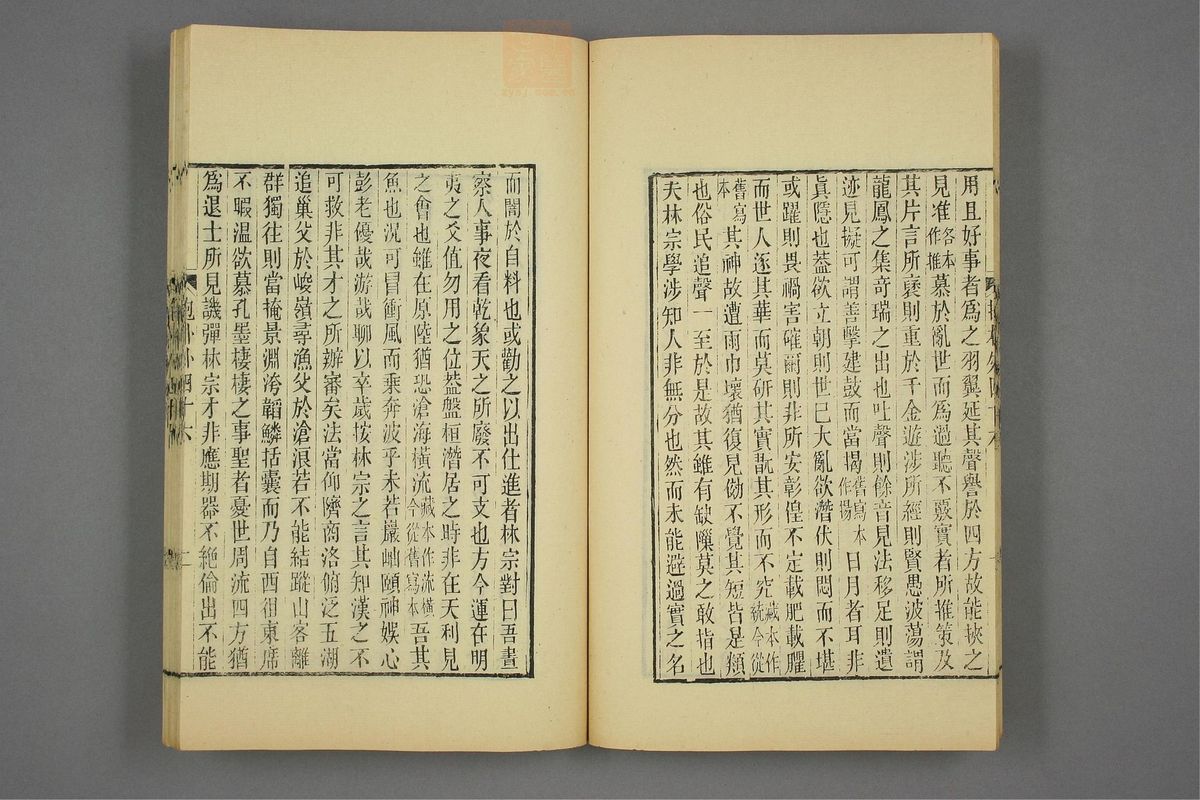 用且好事者爲之羽翼延其聲譽於四方故能挾之
見准各本作推慕於亂世而爲過聽不覈實者所推策及
其片言所襃則重於千金遊涉所經則賢愚波蕩謂
龍鳳之集奇瑞之出也吐聲則餘音見法移足則遺
迹見擬可謂善擊建鼓而當揭舊寫本作揚日月者耳非
眞隱也葢欲立朝則世已大亂欲潛伏則悶而不堪
或躍則畏禍害確爾則非所安彰偟不定載肥載臞
而世人逐其華而莫研其實翫其形而不究藏本作統今從
舊寫本其神故遭雨巾壞猶復見傚不覺其短皆是類
也俗民追聲一至於是故其雖有缺隟莫之敢指也
夫林宗學涉知人非無分也然而未能避過實之名
而闇於自料也或勸之以出仕進者林宗對曰吾晝
察人事夜看乾象天之所廢不可支也方今運在明
夷之爻值勿用之位葢盤桓潛居之時非在天利見
之會也雖在原陸猶恐滄海橫流藏本作流橫今從舊寫本吾其
魚也況可冒衝風而乘奔波乎未若巖岫頤神娛心
彭老優哉游哉聊以卒歲按林宗之言其知漢之不
可救非其才之所辦審矣法當仰隮商洛俯泛五湖
追巢父於峻嶺尋漁父於滄浪若不能結蹤山客離
群獨往則當掩景淵洿韜鱗括囊而乃自西徂東席
不暇溫欲慕孔墨棲棲之事聖者憂世周流四方猶
爲退士所見譏彈林宗才非應期器不絶倫出不能